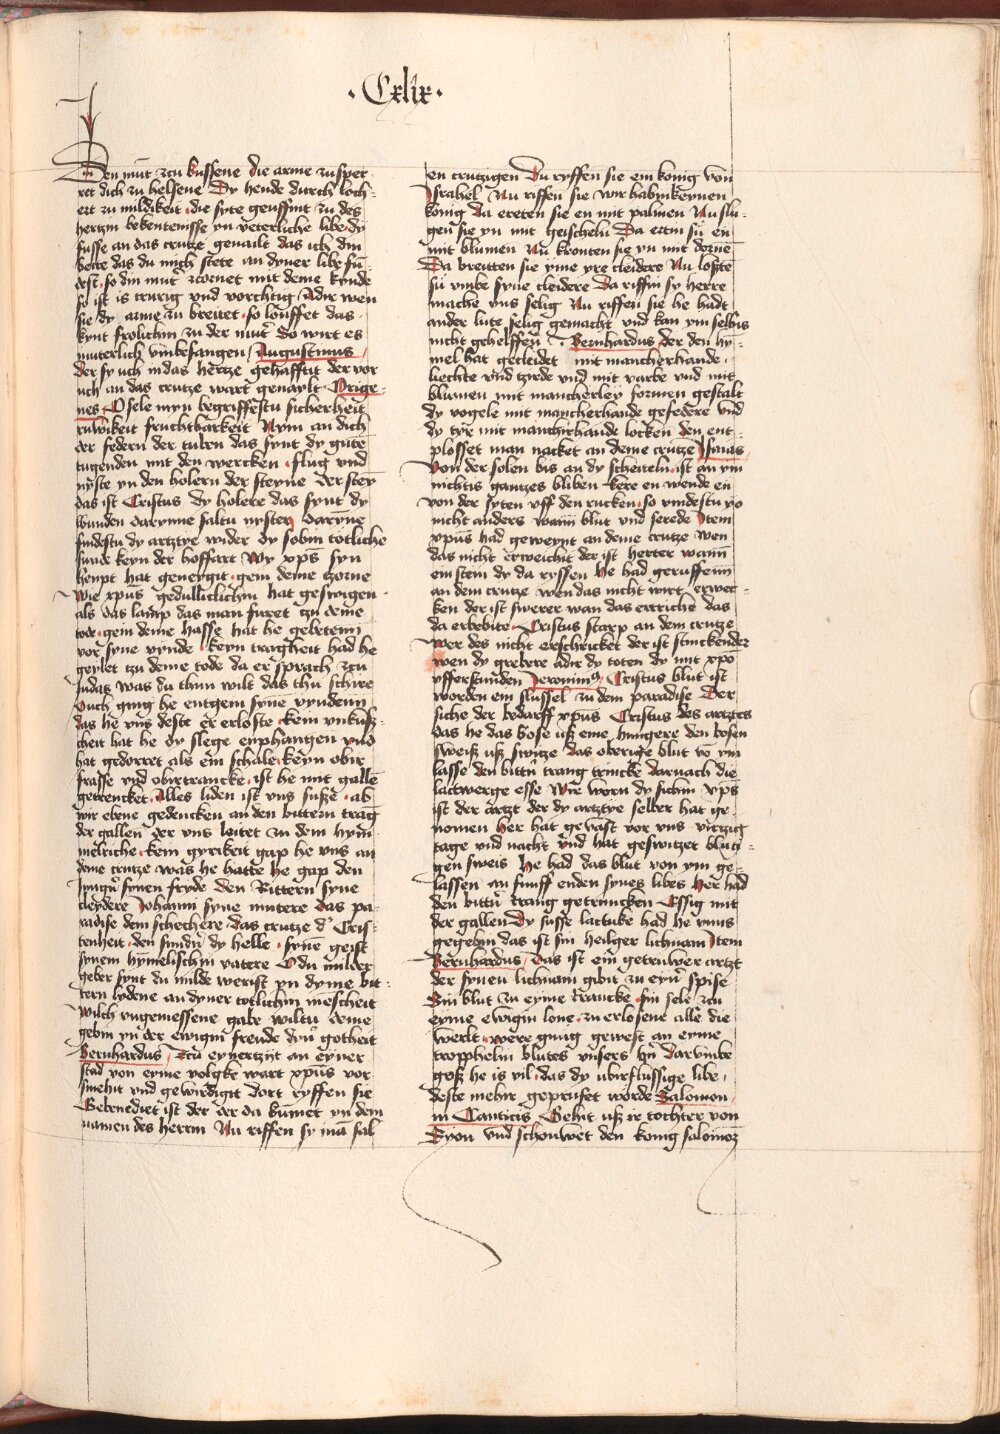 ·Cxlix·
Den mut zcu kussene die arme zuspet
ret dich zu helsene Dy hende durch loch
ert zu mildikeit die syte geuffint zu des
hertzin bekentenisse yn veterliche libe dy
fusse an das crutze genailt das ich din
beite das du mich stete an dyner libe fu
dest so din mut zwenet mit deme kynde
so ist is trurig vnd vorchtig Adir wen
sie dy arme zu breitet so louffet das
kynt frolichin zu der mut' do wirt es
muterlich vmbefangen Augustinus
Der sy uch in das hertze gehafftit der vor
uch an das crutze wart genaylt Orige
nes O sele myn begriffestu sicherheit
ruwikeit fruchtbarkeit Nym an dich
der federn der tuben das synt dy gute
tugenden mit den wercken flug vnd
nyste yn den holern der steyne Der stey
das ist Cristus dy holere das synt dy
wunden darynne saltu nysten daryne
findestu dy artztye wider dy sobin totliche
sunde keyn der hoffart Wy xpus syn
heupt hat geneygit gein deme czorne
wie xpus gedulticlichin hat geswigen
als das lamp das man furet tzu deme
tode gein deme hasse hat he gebetenn
vor syne vynde keyn tragheit had he
geylet tzu deme tode da er sprach zcu
Judas was du thun wilt das thu schire
Ouch ging he entgein syne vyndenn
das he vns deste er erloste kein vnkusz
cheit hat he dy slege enphangen vnd
hat gedorret als ein schale keyn obir
frasse vnd obirtrancke ist he mit galle
getrencket Alles liden ist vns susze ab
wir ebene gedencken an den bittern trag
der gallen der vns leitet zu dem hym
melriche kein gyrikeit gap he vns an
deme crutze was he hatte he gap den
Jungir synen fryde den Rittern syne
cleydere Johanni syne mutere das pa
radise dem schechere das crutze d' Cris
tenheit den sundir dy helle syne geist
synem hymelischin vatere O du milder
geber synt du milde werist yn dyme bit
tern lydene an dyner totlichin mescheit
wilch vngemessene gabe wiltu deme
gebin yn der ewigin freude dyn' gotheit
Bernhardus Zcu eynertzijt an eyner
stad von eyme volgke wart xpus vor
smehit vnd gewirdigit dort ryffen sie
Gebenediet ist der der da kumet yn dem
namen des herrin Nu riffen sy ma sal
en crutzigen Du ryffen sie ein konig von
Israhel Nu riffen sie wir habin keynen
konig Da ereten sie en mit palmen Nu slu
gen sie yn mit geischeln Da ertin sü en
mit blumen Nu kronten sie yn mit dorne
Da breitten sie yme yre cleidere Nu loste
sü vmbe syne cleidere Da riffin sy herre
mache vns selig Nu riffen sie he hadt
ander lute selig gemacht vnd kan ym selbis
nicht gehelffen Bernhardus der den hy
mel hat gecleidet mit mancherhande
liechte vnd tzirde vnd mit varbe vnd mit
blumen mit mancherley formen gestalt
dy vogele mit mancherhande gefedere vnd
dy tyre mit mancherhande locken den ent
plosset man nacket an deme crutze Isaias
Von der solen bis an dy scheiteln ist an ym
nichtis gantzes bliben Kere en wende en
von der syten uff den rucken so vindestu yo
nicht anders wann blut vnd serede Item
xpus had geweynt an deme crutze wen
das nicht erweichit der ist herter wann
ein stein dy da ryssen he had geruffenn
an dem crutze wen das nicht wirt erwec
ken der ist swerer wan das ertriche das
da erbebite Cristus starp an dem crutze
wer des nicht erschricket der ist stinckender
wen dy grebere adir dy toten dy mit xpo
ufferstunden Jeronim9 Cristus blut ist
worden ein slussel zu dem paradise Der
siche der bedarff xpus Cristus des artztes
das he das bose usz eme hungere den bosen
sweisz usz switze das oberige blut vo ym
lasse den bittir trang trincke darnach die
lactwerge esse Wie worn dy sichin xps
ist der artzt der dy artztye selber hat ge
nomen Her hat gevast vor vns virtzig
tage vnd nacht vnd hat geswitzet bluti
gen sweis he had das blut von ym ge
lassen an funff enden synes libes her had
den bittir trang getruncken Essig mit
der gallen Dy susse lactuke had he vnns
gegebin das ist sin heilger lichnam Item
Bernhardus Das ist ein getruwer artzt
der synen lichnam gibit zu eyn' spise
Sin blut zu eyme trancke sin sele zcu
eyme ewigin lone zu erlosene alle die
werlt were gnug gewest an eyme
tropphelin blutes vnsers h'n Darvmbe
gosz he is vil das dy ubirflussige libe
deste mehir geprufet worde Salomon
in Canticis Gehit usz ir tochter von
Syon vnd schouwet den konig salomon